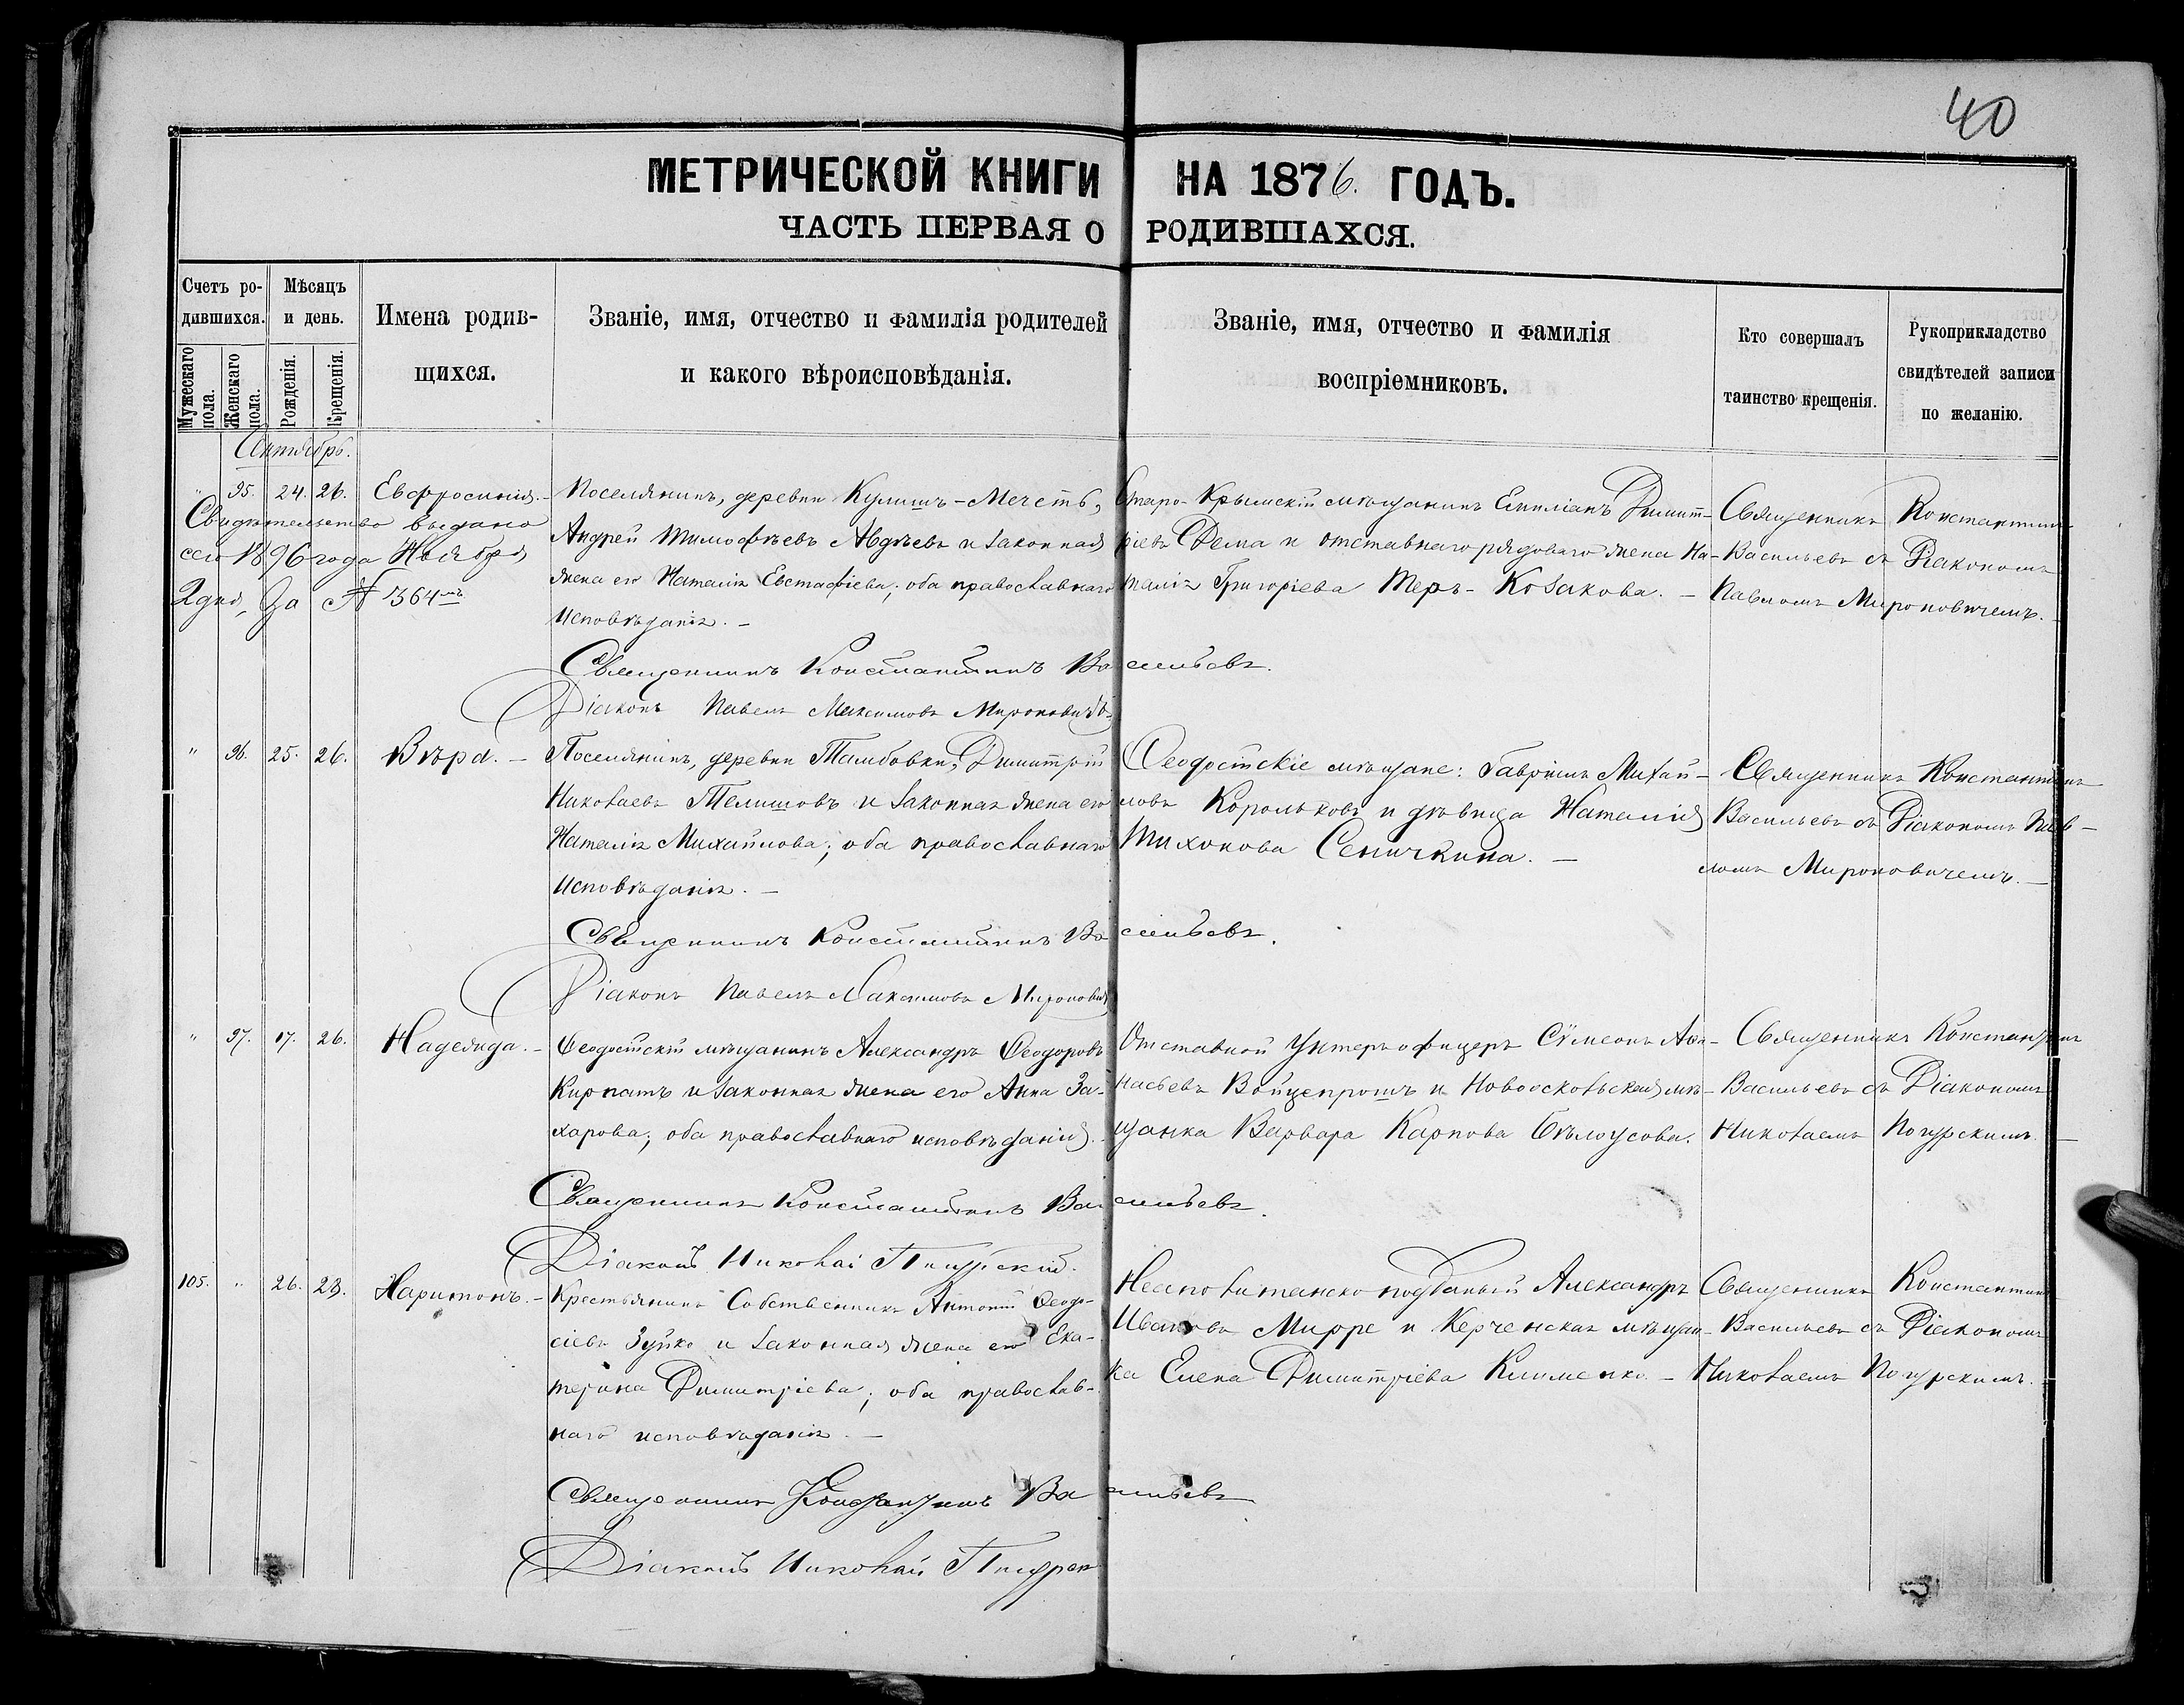 40
МЕТРИЧЕСКОЙ КНИГИ НА 1876. ГОДЪ.
ЧАСТЬ ПЕРВАЯ О РОДИВШАХСЯ.
Счетъ ро-
дившихся.
Мужескаго пола.
Женскаго пола.
Мѣсяцъ
и день.
Рожденія.
Крещенія.
Имена родив-
шихся.
Званіе, имя, отчество и фамилія родителей
и какого вѣроисповѣданія.
Званіе, имя, отчество и фамилія
воспріемниковъ.
Кто совершалъ
таинство крещенія.
Рукоприкладство
свидѣтелей записи
по желанію.
Сентябрь.
" 95. 24. 26. Евфросинія. -
Свидѣтельство выдано
сего 1896 года Ноября
2 дня, за № 364мъ
Поселянинъ, деревни Кулишъ-Мечеть,
Андрей Тимофѣевъ Авдѣевъ и законная
жена его Наталія Евстафіева; оба православнаго
исповѣданія. -
Старо-Крымскій мѣщанинъ Емиліанъ Димит-
ріевъ Дема и отставнаго рядоваго жена На-
талія Григоріева Теръ-Козакова. -
Священникъ Константинъ
Васильевъ съ Діакономъ
Павломъ Мироновичемъ.
Священникъ Константинъ Васильевъ.
Діаконъ Павелъ Максимовъ Мироновичъ
" 96. 25. 26. Вѣра. -
Поселянинъ, деревни Тамбовки, Димитрій
Николаевъ Телишовъ и законная жена его
Наталія Михайлова; оба православнаго
исповѣданія. -
Ѳеодосійскіе мѣщане: Гавріилъ Михай-
ловъ Корольковъ и дѣвица Наталія
Тихонова Сеничкина. -
Священникъ Константинъ
Васильевъ съ Діакономъ Пав-
ломъ Мироновичемъ. -
Священникъ Константинъ Васильевъ.
Діаконъ Павелъ Максимовъ Мироновичъ
" 97. 17. 26. Надежда. -
Ѳеодосійскій мѣщанинъ Александръ Ѳеодоровъ
Кирпатъ и законная жена его Анна За-
харова; оба православнаго исповѣданія. -
Отставной Унтеръ офицеръ Сѵмеонъ Аѳа-
насьевъ Войцепрошъ и Новооскольская мѣ-
щанка Варвара Карпова Бѣлоусова.
Священникъ Константинъ
Васильевъ съ Діакономъ
Николаемъ
Священникъ Константинъ Васильевъ.
Діаконъ Николай
105. " 26. 28. Харитонъ. -
Крестьянинъ Собственникъ Антоній Ѳеодо-
сіевъ Зуйко и законная жена его Ека-
терина Димитріева; оба православ-
наго исповѣданія. -
Неаполитанско подданый Александръ
Ивановъ Мирре и Керченская мѣщан-
ка Елена Димитріева Клименко. -
Священникъ Константинъ
Васильевъ съ Діакономъ
Николаемъ
Священникъ Константинъ Васильевъ
Діаконъ Николай